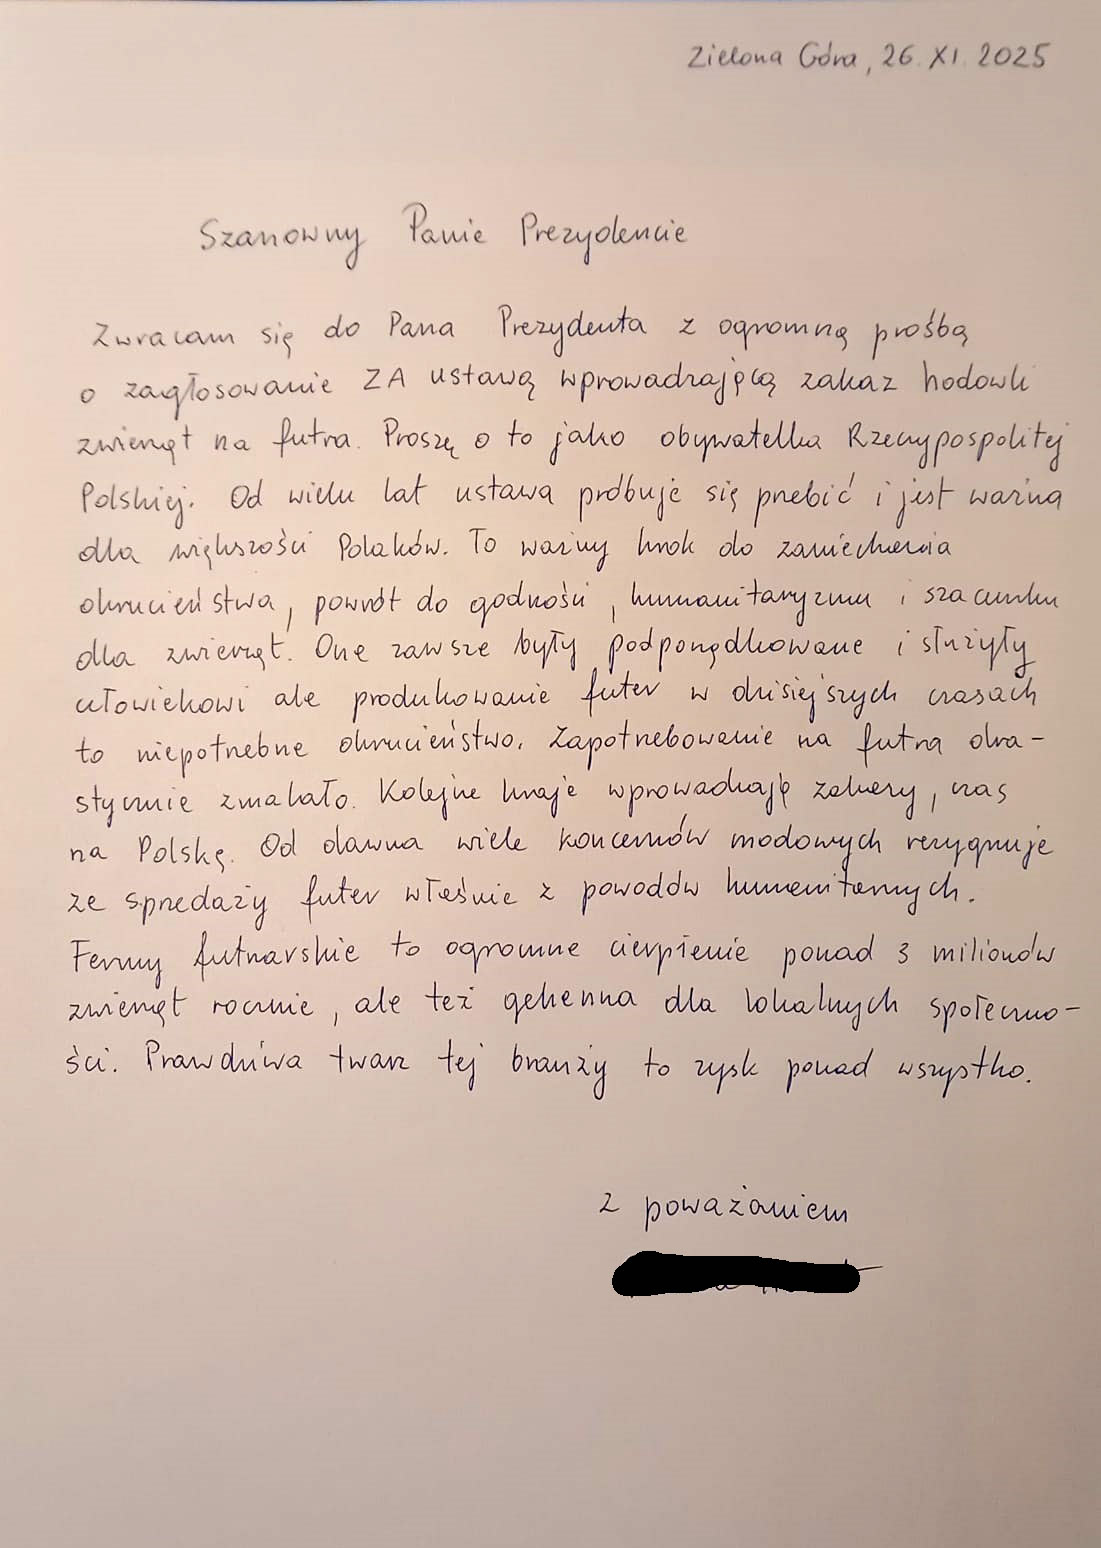 Zielona Góra, 26.XI.2025
Szanowny Panie Prezydencie
Zwracam się do Pana Prezydenta z ogromną prośbą
o zagłosowanie ZA ustawą wprowadzającą zakaz hodowli
zwierząt na futra. Proszę o to jako obywatelka Rzeczypospolitej
Polskiej. Od wielu lat ustawa próbuje się przebić i jest ważna
dla większości Polaków. To ważny krok do zaniechania
okrucieństwa, powrót do godności, humanitaryzmu i szacunku
dla zwierząt. One zawsze były podporządkowane i służyły
człowiekowi ale produkowanie futer w dzisiejszych czasach
to niepotrzebne okrucieństwo. Zapotrzebowanie na futra dra-
stycznie zmalało. Kolejne kraje wprowadzają zakazy, czas
na Polskę. Od dawna wiele koncernów modowych rezygnuje
ze sprzedaży futer właśnie z powodów humanitarnych.
Fermy futrzarskie to ogromne cierpienie ponad 3 milionów
zwierząt rocznie, ale też gehenna dla lokalnych społeczno-
ści. Prawdziwa twarz tej branży to zysk ponad wszystko.
Z poważaniem